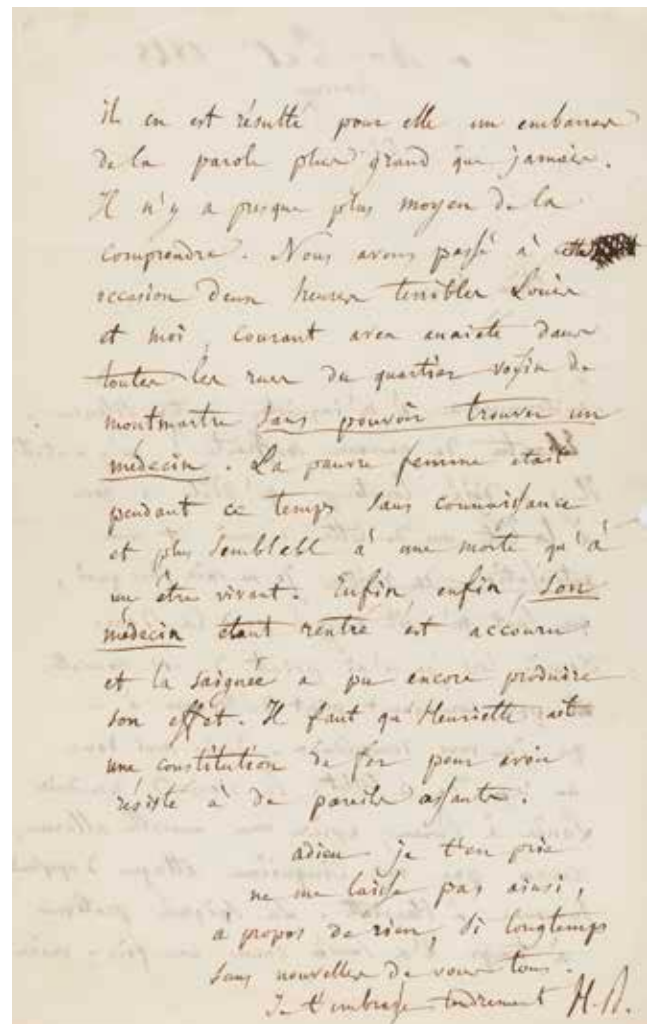 il en est résulté pour elle un embarras
de la parole plus grand que jamais.
Il n'y a presque plus moyen de la
comprendre. Nous avons passé à cette
occasion deux heures terribles Louis
et moi, courant avec anxiété dans
toutes les rues du quartier voisin de
montmartre sans pouvoir trouver un
médecin. La pauvre femme était
pendant ce temps sans connaissance
et plus semblabl à une morte qu'à
un être vivant. Enfin, enfin, son
médecin étant rentré est accouru
et la saignée a pu encore produire
son effet. Il faut qu'Henriette ait
une constitution de fer pour avoir
résisté à de pareils assauts.
adieu je t'en prie
ne me laisse pas ainsi,
à propos de rien, si longtemps
sans nouvelles de vous tous.
Je t'embrasse tendrement H.B.